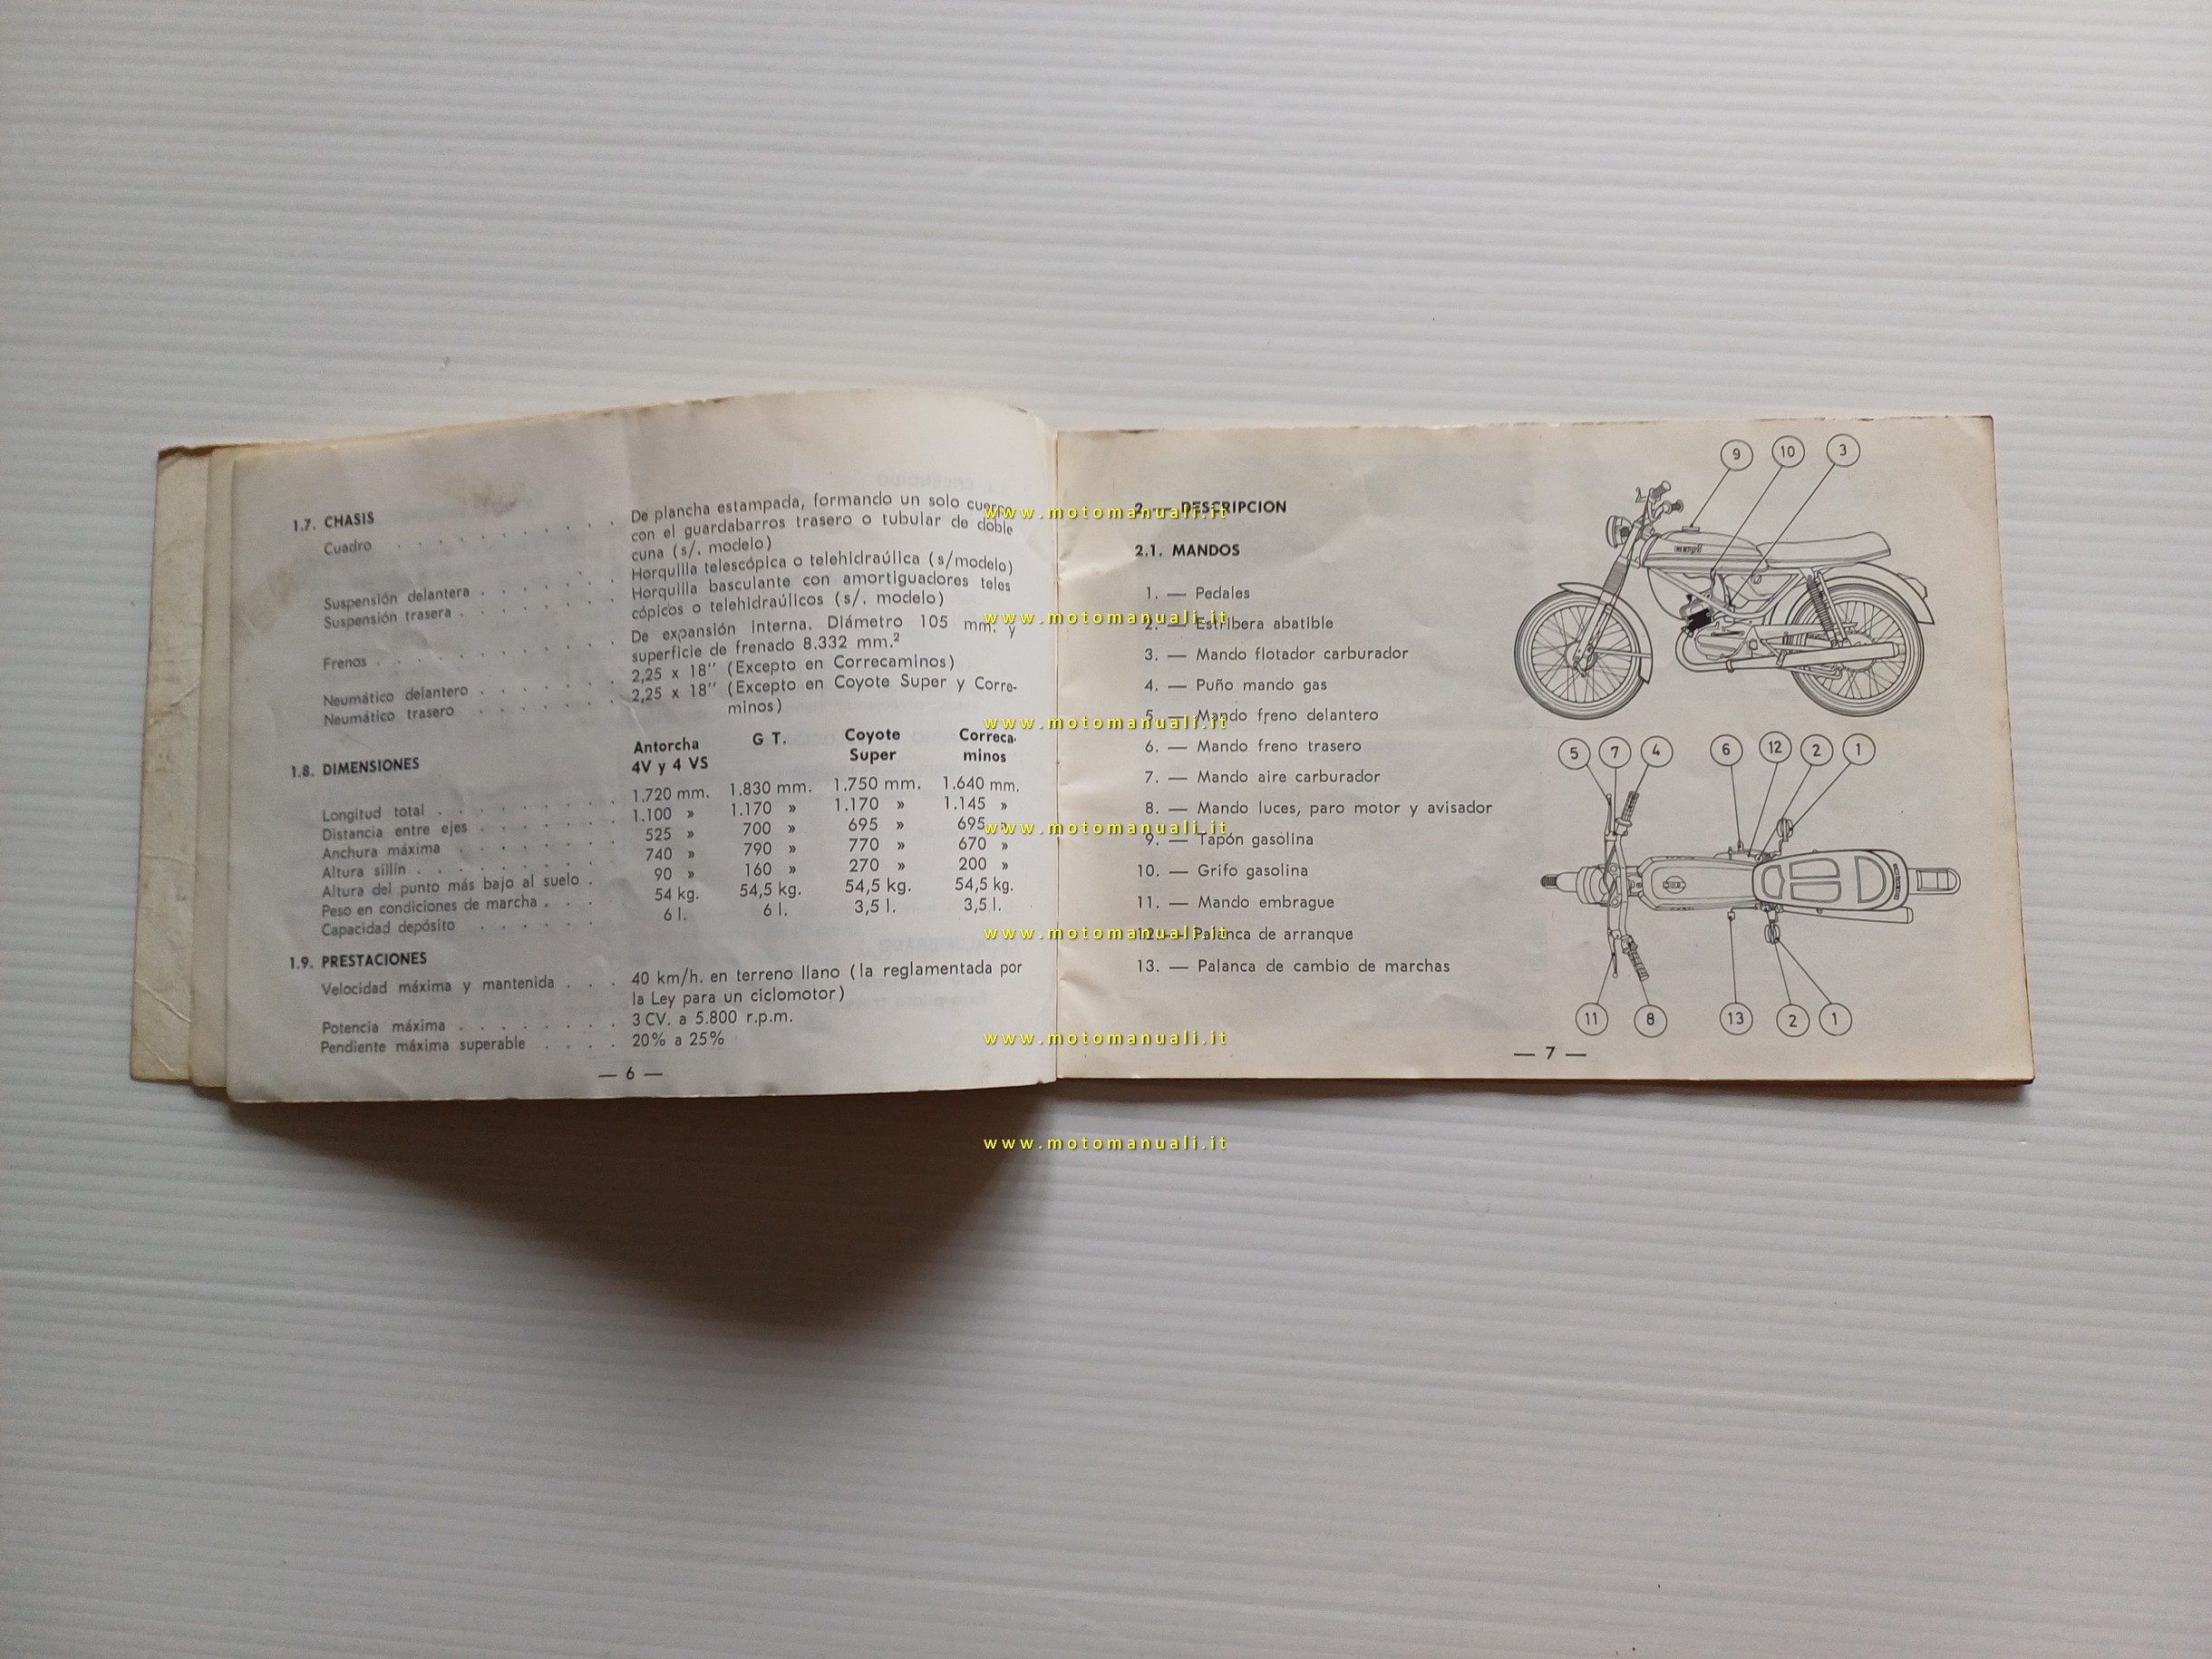 1.7. CHASIS
Cuadro . . . . . . . . . De plancha estampada, formando un solo cuerpo
con el guardabarros trasero o tubular de doble
cuna (s/. modelo)
Suspensión delantera . . . . . . Horquilla telescópica o telehidraúlica (s/modelo)
Suspensión trasera . . . . . . . Horquilla basculante con amortiguadores teles
cópicos o telehidraúlicos (s/. modelo)
Frenos . . . . . . . . . . De expansión interna. Diámetro 105 mm. y
superficie de frenado 8.332 mm.²
Neumático delantero . . . . . . 2,25 x 18" (Excepto en Correcaminos)
Neumático trasero . . . . . . 2,25 x 18" (Excepto en Coyote Super y Corre-
minos)
1.8. DIMENSIONES
Antorcha G T. Coyote Correca-
4V y 4 VS Super minos
Longitud total . . . . . . . . 1.720 mm. 1.830 mm. 1.750 mm. 1.640 mm.
Distancia entre ejes . . . . . . 1.100 » 1.170 » 1.170 » 1.145 »
Anchura máxima . . . . . . . 525 » 700 » 695 » 695 »
Altura sillín . . . . . . . . 740 » 790 » 770 » 670 »
Altura del punto más bajo al suelo . 90 » 160 » 270 » 200 »
Peso en condiciones de marcha . . . 54 kg. 54,5 kg. 54,5 kg. 54,5 kg.
Capacidad depósito . . . . . . 6 l. 6 l. 3,5 l. 3,5 l.
1.9. PRESTACIONES
Velocidad máxima y mantenida . . . 40 km/h. en terreno llano (la reglamentada por
la Ley para un ciclomotor)
Potencia máxima . . . . . . . . 3 CV. a 5.800 r.p.m.
Pendiente máxima superable . . . . 20% a 25%
— 6 —
2. — DESCRIPCION
2.1. MANDOS
1. — Pedales
2. — Estribera abatible
3. — Mando flotador carburador
4. — Puño mando gas
5. — Mando freno delantero
6. — Mando freno trasero
7. — Mando aire carburador
8. — Mando luces, paro motor y avisador
9. — Tapón gasolina
10. — Grifo gasolina
11. — Mando embrague
12. — Palanca de arranque
13. — Palanca de cambio de marchas
9 10 3
5 7 4 6 12 2 1
11 8 13 2 1
— 7 —
www.motomanuali.it
www.motomanuali.it
www.motomanuali.it
www.motomanuali.it
www.motomanuali.it
www.motomanuali.it
www.motomanuali.it